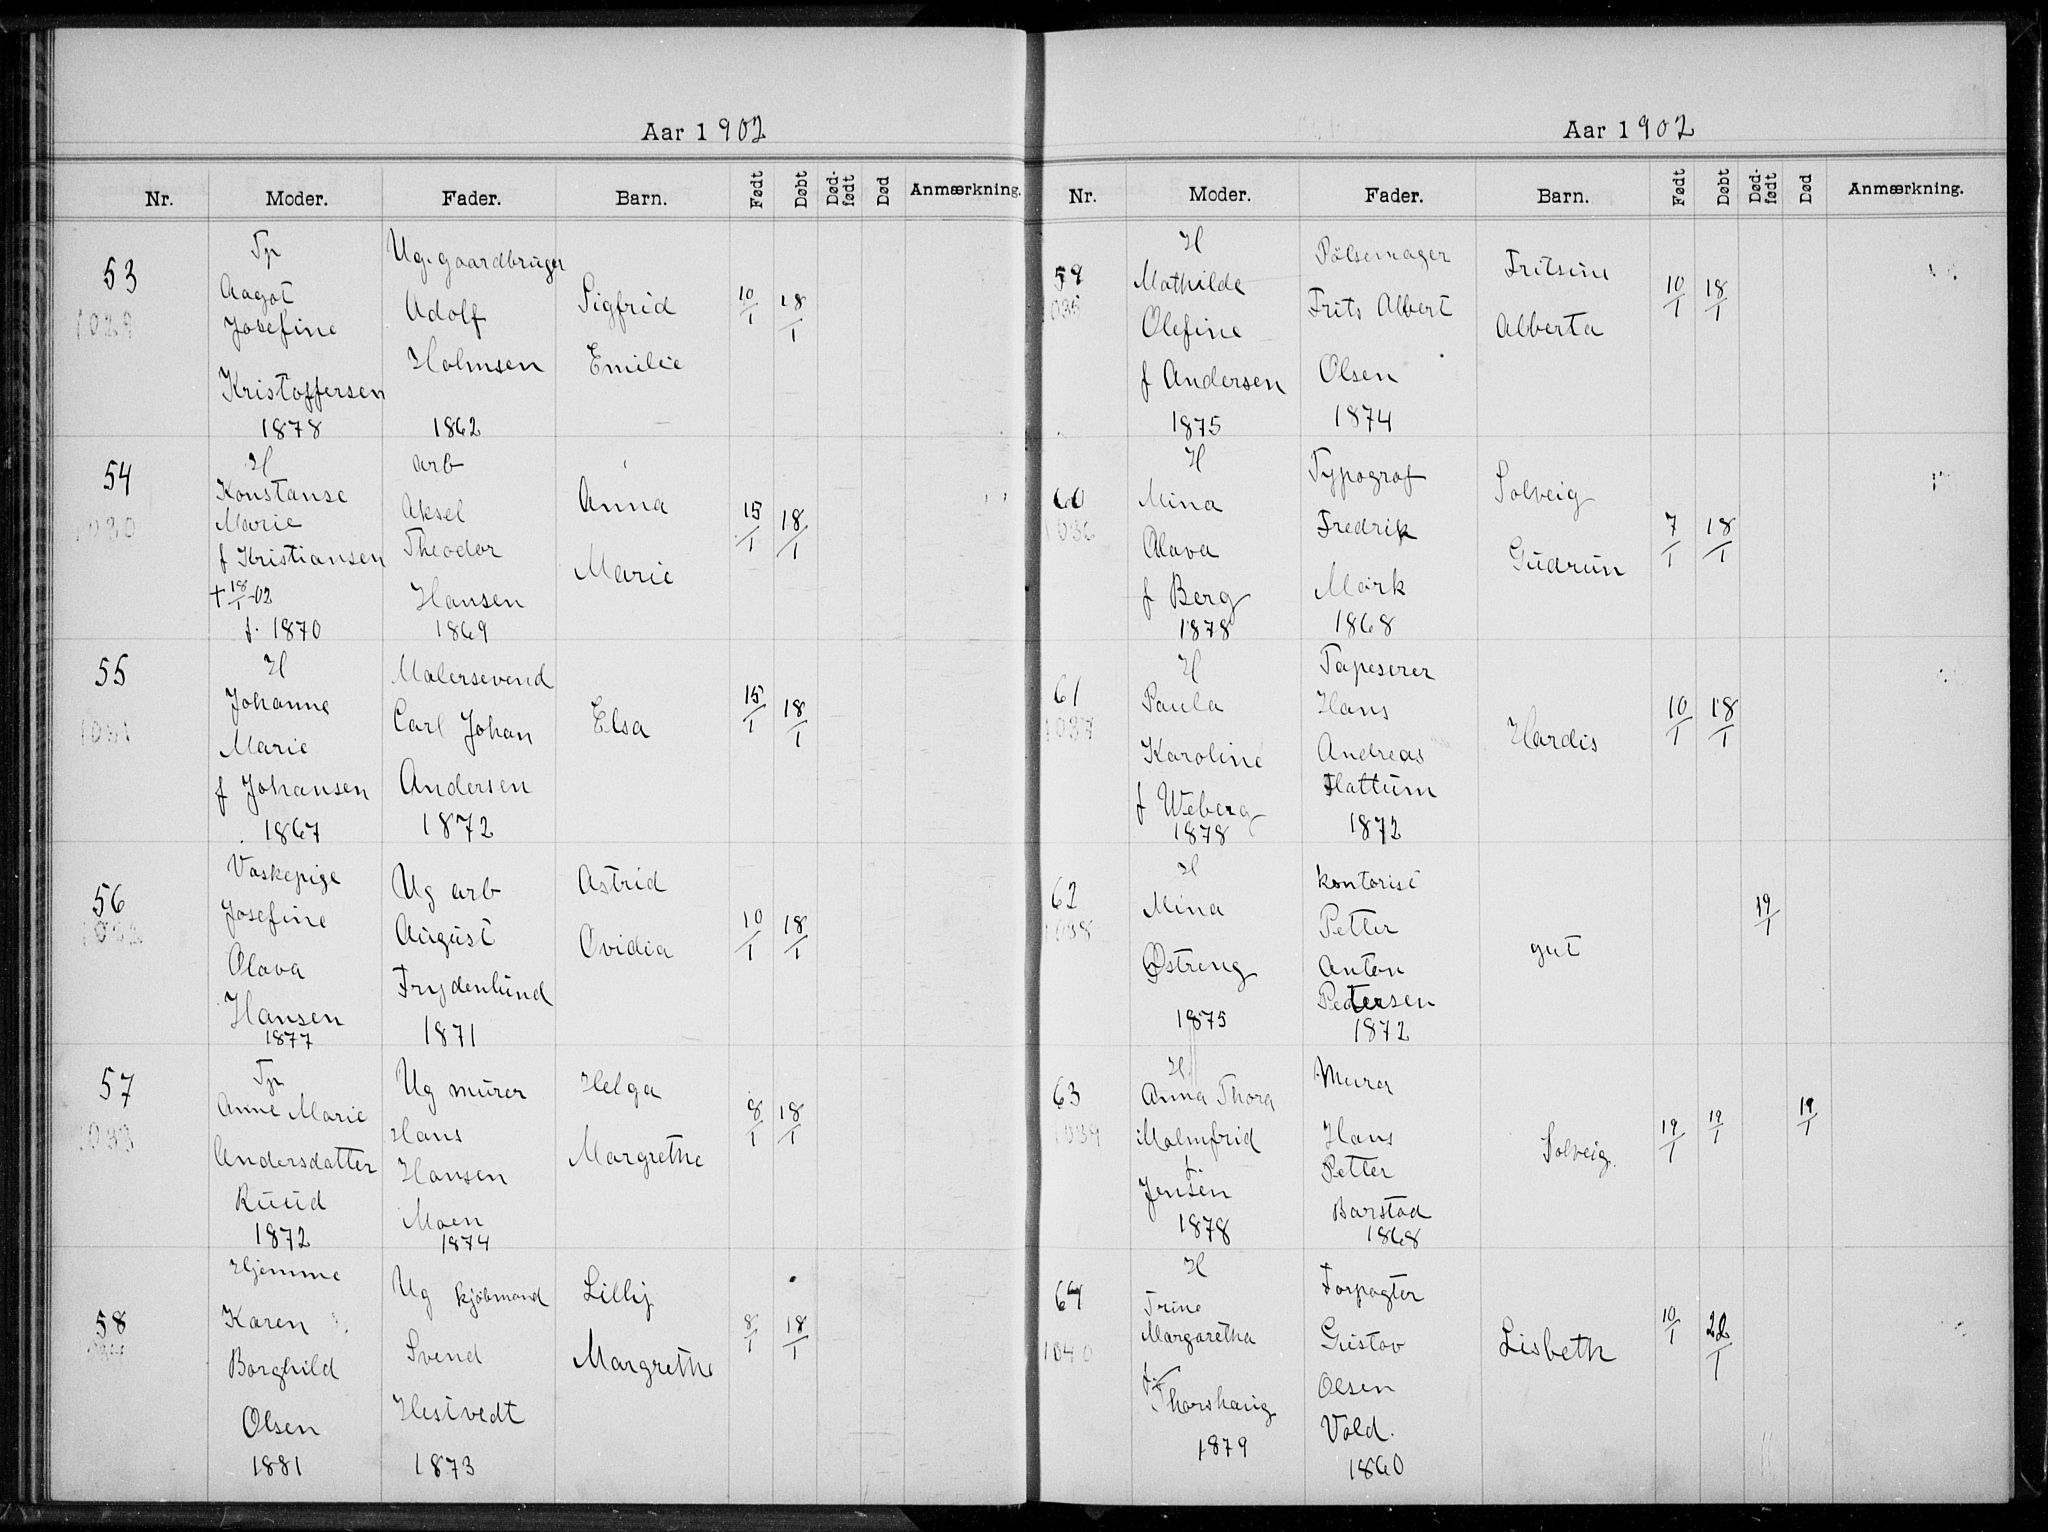 Aar 1902
Nr. Moder. Fader. Barn. Født Døbt Død-født Død Anmærkning.
53
1029
Tp
Aagot
Josefine
Kristoffersen
1878
Ug. gaardbruger
Adolf
Holmsen
1862
Sigfrid
Emilie
10/1 18/1
54
1030
H
Konstanse
Marie
f Kristiansen
+ 18/1-02
f. 1870
arb
Aksel
Theodor
Hansen
1869
Anna
Marie
15/1 18/1
55
1031
H
Johanne
Marie
f Johansen
1867
Malersevend
Carl Johan
Andersen
1872
Elsa
15/1 18/1
56
1032
Vaskepige
Josefine
Olava
Hansen
1877
Ug arb
August
Frydenlund
1871
Astrid
Ovidia
10/1 18/1
57
1033
Tp
Anne Marie
Andersdatter
Ruud
1872
Ug murer
Hans
Hansen
Moen
1874
Helga
Margrethe
8/1 18/1
58
Hjemme
Karen
Borghild
Olsen
1881
Ug kjöbmand
Svend
Hestvedt
1873
Lilly
Margrethe
8/1 18/1
Aar 1902
Nr. Moder. Fader. Barn. Født Døbt Død-født Død Anmærkning.
59
1035
H
Mathilde
Olefine
f Andersen
1875
Pölsemager
Frits Albert
Olsen
1874
Fritsine
Alberta
10/1 18/1
60
1036
H
Mina
Olava
f Berg
1878
Typograf
Fredrik
Mørk
1868
Solveig
Gudrun
7/1 18/1
61
1037
H
Paula
Karoline
f Weberg
1878
Tapeserer
Hans
Andreas
Flattum
1872
Hardis
10/1 18/1
62
1038
H
Mina
Østreng
1875
kontorist
Petter
Anton
Pedersen
1872
gut
19/1
63
1039
H
Anna Thora
Malmfrid
f
Jensen
1878
Murer
Hans
Petter
Barstad
1868
Solveig.
19/1 19/1 19/1
64
1040
H
Trine
Margaretha
f.
Thorshaug
1879
Forpagter
Gustav
Olsen
Vold.
1860
Lisbeth
10/1 22/1